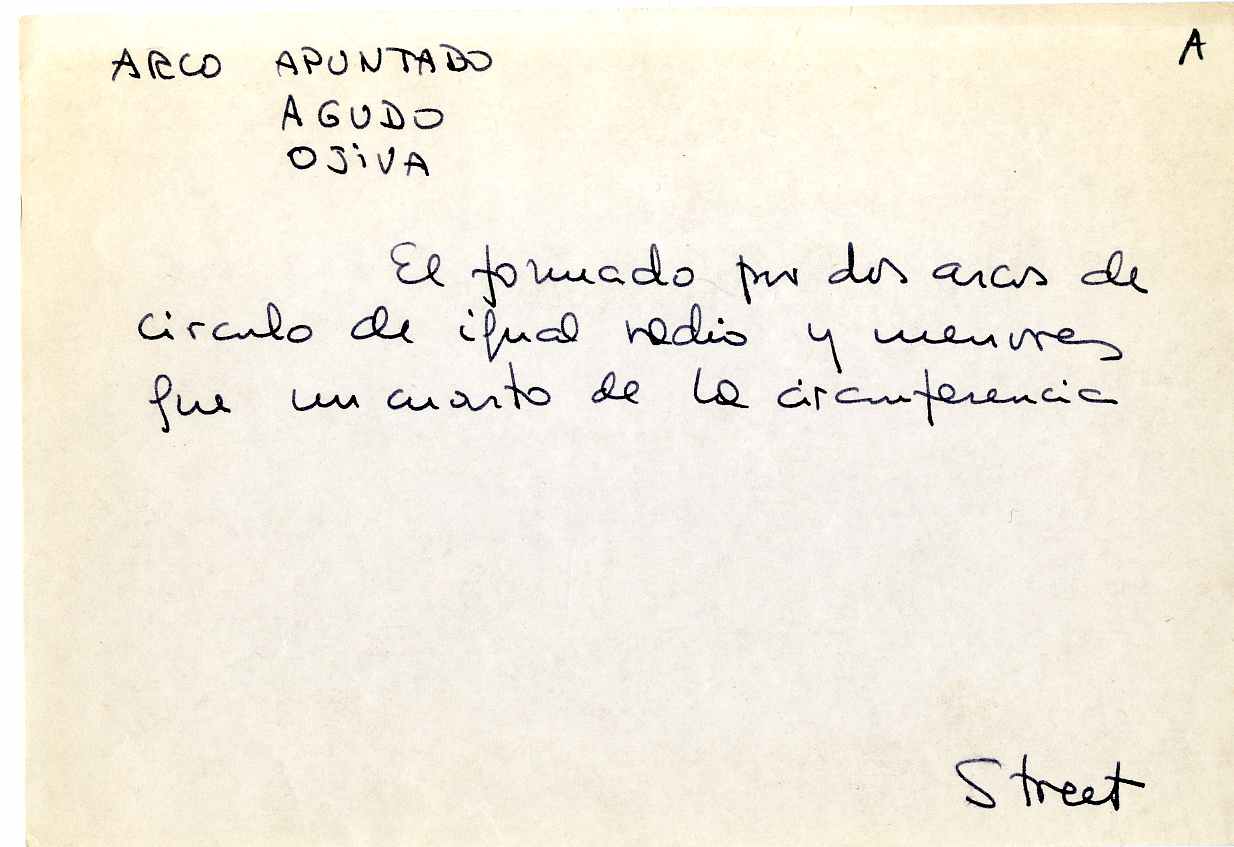 A
ARCO APUNTADO
AGUDO
OJiVA
El formado por dos arcos de
circulo de igual radio y menores
que un cuarto de la circunferencia
Street